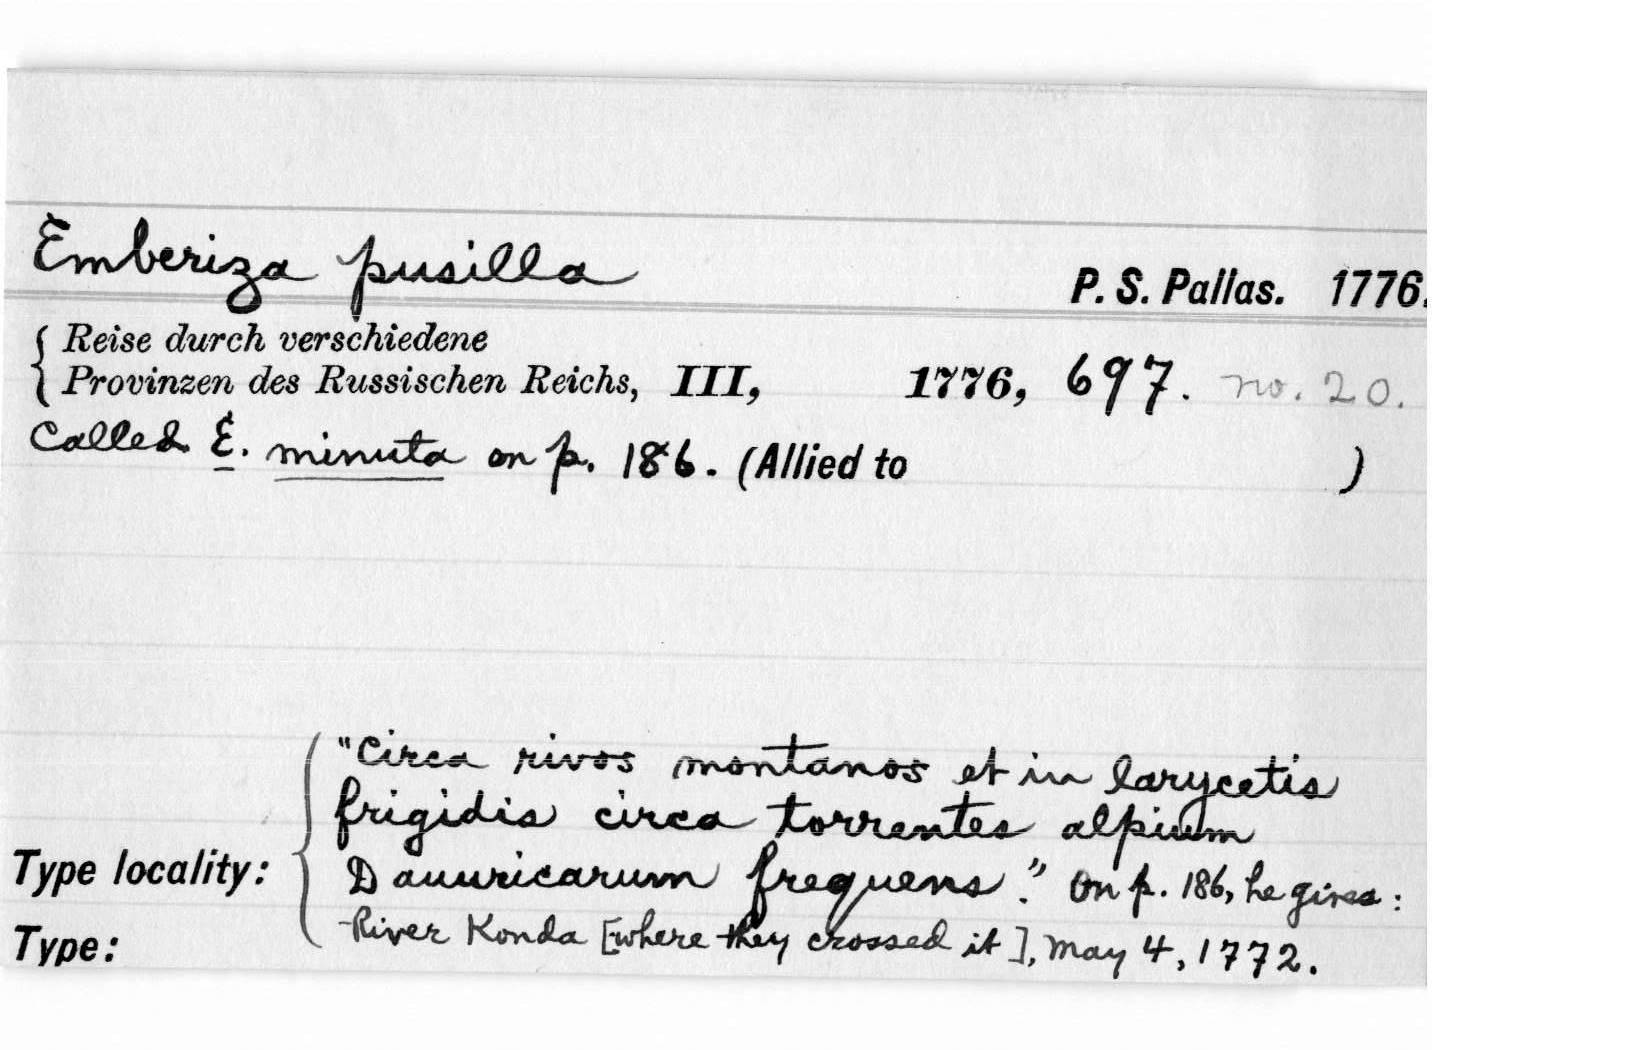 Emberiza pusilla
P. S. Pallas. 1776.
Reise durch verschiedene
Provinzen des Russischen Reichs, III, 1776, 697. no. 20.
Called E. minuta on p. 186. (Allied to )
"Circa rivos montanos et in larycetis
frigidis circa torrentes alpium
Type locality: Dauuricarum frequens." On p. 186, he gives:
River Konda [where they crossed it], May 4, 1772.
Type: